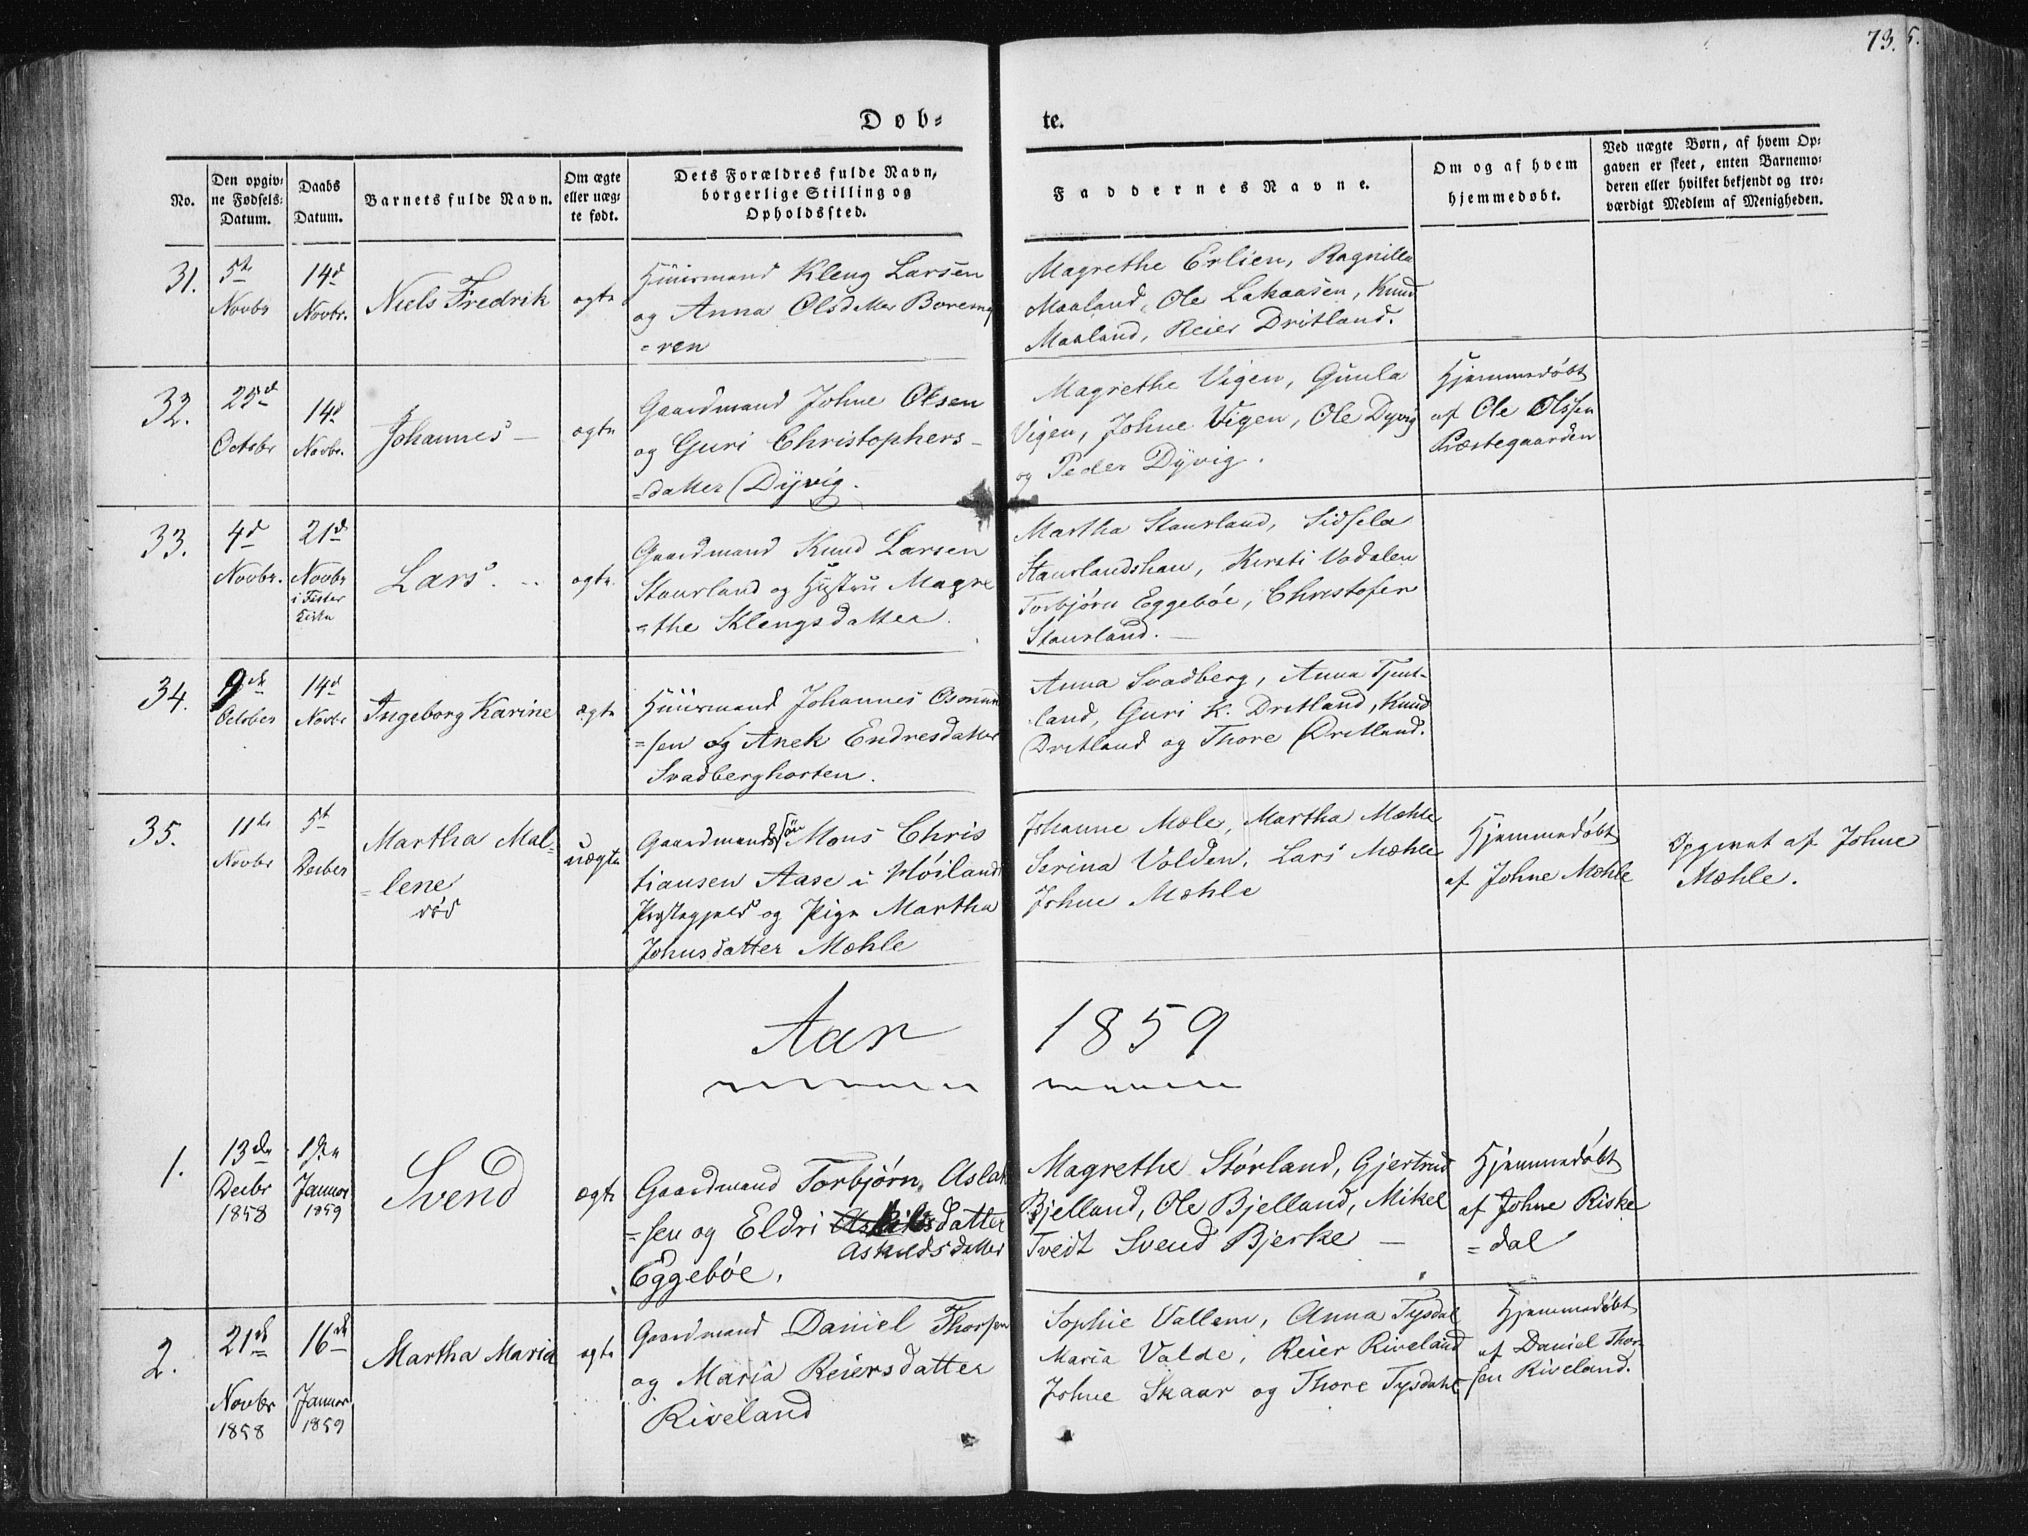 73. 5.
Døb-
te.
No.
Den opgiv-
ne Fødsels-
Datum.
Daabs
Datum.
Barnets fulde Navn.
Om ægte
eller uæg-
te født.
Dets Forældres fulde Navn,
borgerlige Stilling og
Opholdssted.
Faddernes Navne.
Om og af hvem
hjemmedøbt.
Ved uægte Børn, af hvem Op-
gaven er skeet, enten Barnemo-
deren eller hvilket bekjendt og tro-
værdigt Medlem af Menigheden.
31.
5te
Novbr
14d
Novbr.
Niels Fredrik
ægte
Huusmand Kleng Larsen
og Anna Olsdatter
=ren
Magrethe Erlien, Ragnilla
Maaland, Ole Lakaasen, Knud
Maaland, Reier Dritland.
32.
25d
Octobr
14d
Novbr.
Johannes –
ægte
Gaardmand Johne Olsen
og Guri Christophers-
=datter Dyvig.
Magrethe Vigen, Gunla
Vigen, Johne Vigen, Ole Dyvig
og Peder Dyvig.
Hjemmedøbt
af Ole Olssen
Præstegaarden
33.
4d
Novbr.
21d
Novbr
i Fister
Kirke
Lars.
ægte
Gaardmand Knud Larsen
Staurland og Hustru Magre
=the Klengsdatter.
Martha Staurland, Sidsela
Staurlandshau, Kirsti Vadalen
Torbjørn Eggebøe, Christofer
Staurland. –
34.
9de
October
14d
Novbr
Ingeborg Karine
ægte
Huusmand Johannes Osmun
=sen og Anek Endresdatter
Svadberghorten.
Anna Svadberg, Anna Tjent-
land, Guri K. Dritland, Knud
Dritland og Thore Dritland.
35.
11te
Novbr
5t
Decber
Martha Mal-
=lene
død
uægte
Gaardmandssøn Mons Chris
tiansen Aase i Høilands
Præstegjeld og Pige Martha
Johnsdatter Mæhle
Johanne Mæle, Martha Mæhle
Serina Volden, Lars Mæhle
Johne Mæhle
Hjemmedøbt
af Johne Mæhle
Opgivet af Johne
Mæhle.
Aar 1859
1.
13de
Decbr
1858
Januar
1859
Svend
ægte
Gaardmand Torbjørn Aslak
=sen og Eldri
Askildsdatter
Eggebøe.
Magrethe Størland, Gjertrud
Bjelland, Ole Bjelland, Mikel
Tveidt Svend Bjerke –
Hjemmedøbt
af Johne Riske
=dal
2.
21de
Novbr
1858
16de
Januar
1859
Martha Maria
ægte
Gaardmand Daniel Thorsen
og Maria Reiersdatter
Riveland
Sophie Vallem, Anna Tysdal
Maria Valde, Reier Riveland
Johne Skaar og Thore Tysdahl
Hjemmedøbt
af Daniel Thor-
sen Riveland.